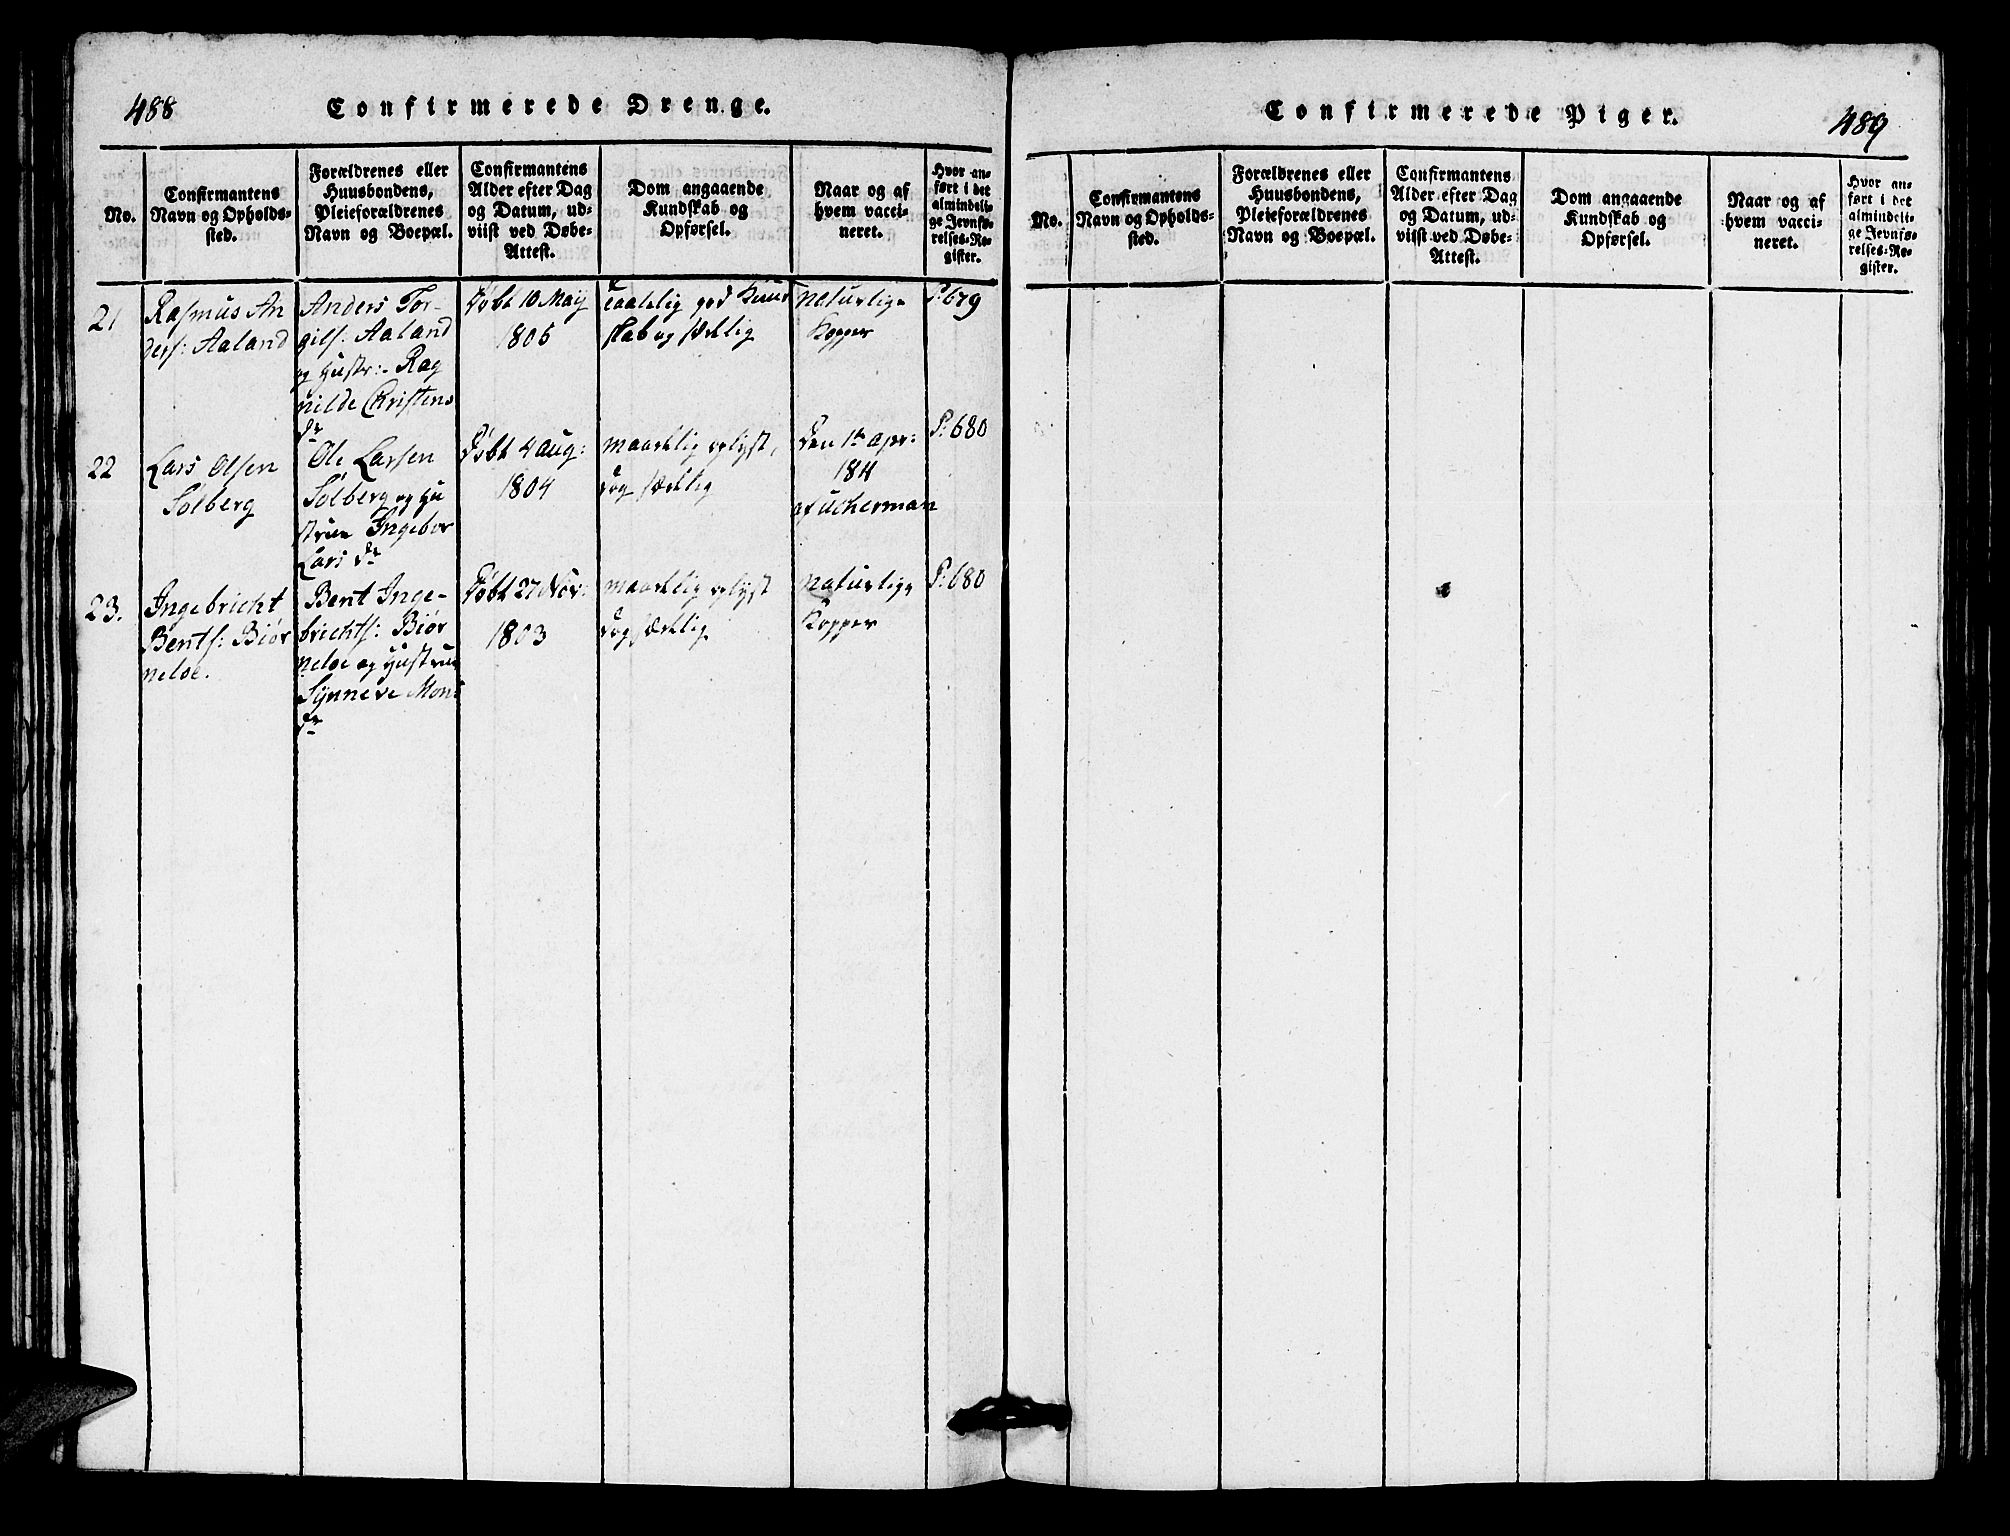 488
Confirmerede Drenge.
No.
Confirmantens
Navn og Opholds-
sted.
Forældrenes eller
Huusbondens,
Pleieforældrenes
Navn og Boepæl.
Confirmantens
Alder efter Dag
og Datum, ud-
viist ved Døbe-
Attest.
Dom angaaende
Kundskab og
Opførsel.
Naar og af
hvem vacci-
neret.
Hvor an-
ført i det
almindeli-
ge Jevnfø-
relses-Re-
gister.
21
Rasmus An
ders: Aaland
Anders Tor-
gils: Aaland
og Hustr: Rag
nilde Christens
dr
Døbt 10 Maij
1805
taalelig god Kund
skab og sædelig
naturlige
Kopper
P: 679
22
Lars Olsen
Solberg
Ole Larsen
Solberg og Hu
strue Ingebor
Lars dr
Døbt 4 Aug:
1804
maadelig oplyst,
dog sædelig
Den 1te Apr:
1811
af Uckerman
P: 680
23.
Ingebricht
Bents: Biør
neloe.
Bent Inge-
brichts: Biør
neloe og Hustrue
Synneve Mons
dr
Døbt 27 Nov:
1803
maadelig oplyst
dog sædelig
naturlige
Kopper
P: 680
Confirmerede Piger.
489
No.
Confirmantens
Navn og Opholds-
sted.
Forældrenes eller
Huusbondens,
Pleieforældrenes
Navn og Boepæl.
Confirmantens
Alder efter Dag
og Datum, ud-
viist ved Døbe-
Attest.
Dom angaaende
Kundskab og
Opførsel.
Naar og af
hvem vacci-
neret.
Hvor an-
ført i det
almindeli-
ge Jevnfø-
relses-Re-
gister.